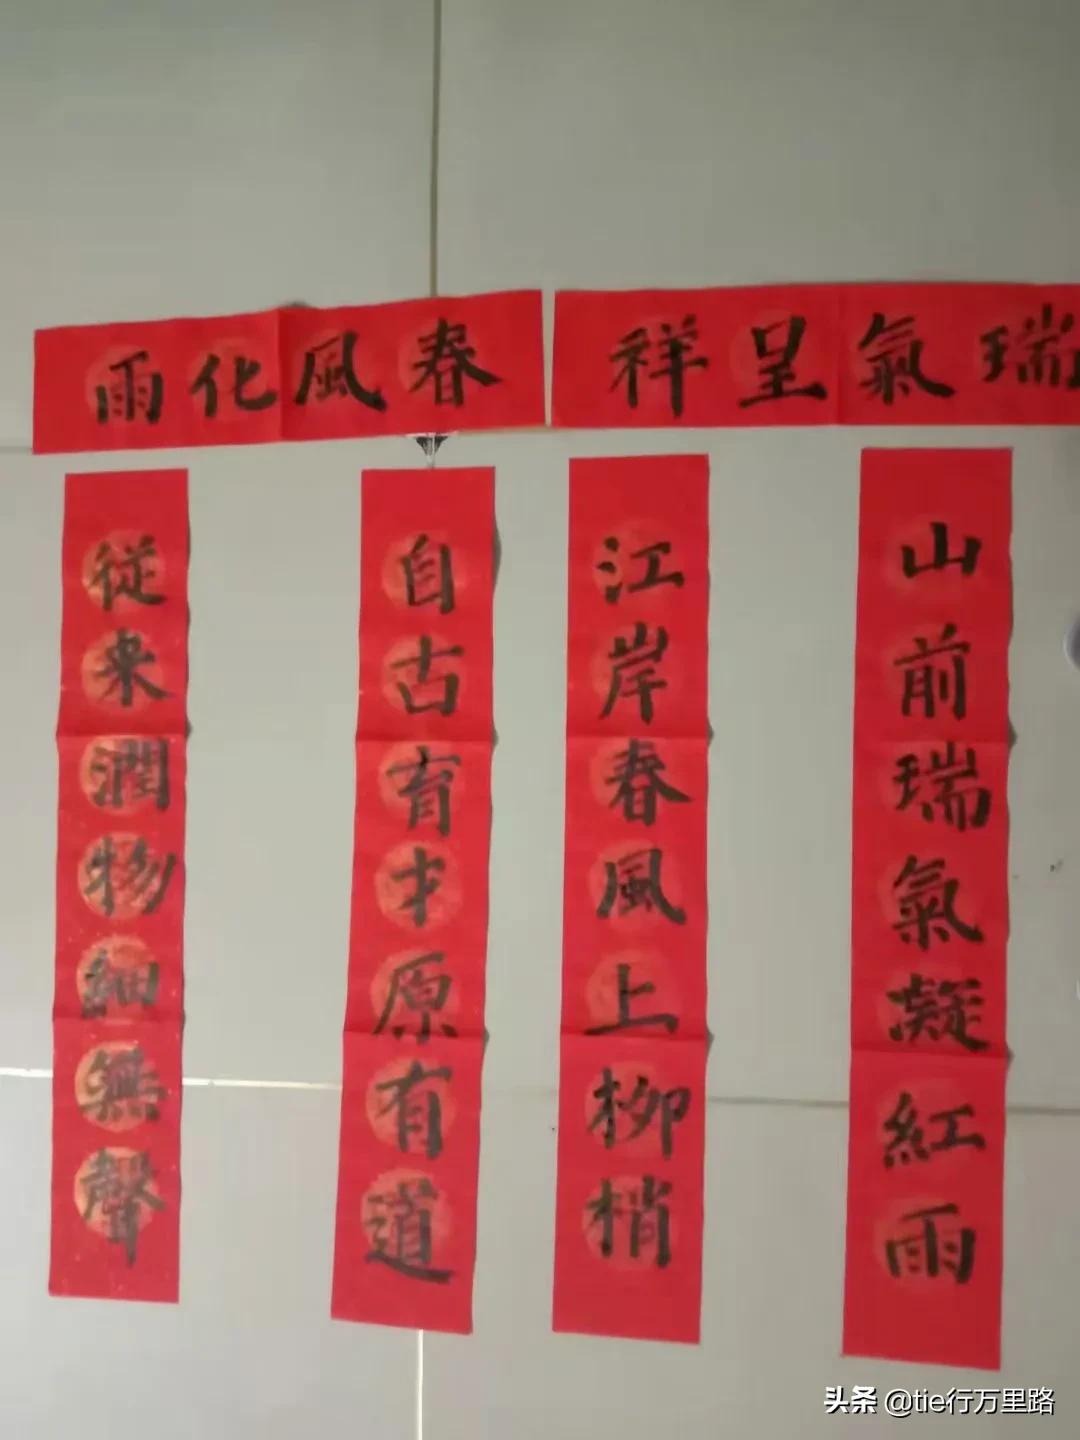 瑞氣呈祥
山前瑞氣凝紅雨
江岸春風上柳梢
春風化雨
自古育才原有道
從来潤物細無聲
头条 @tie行万里路